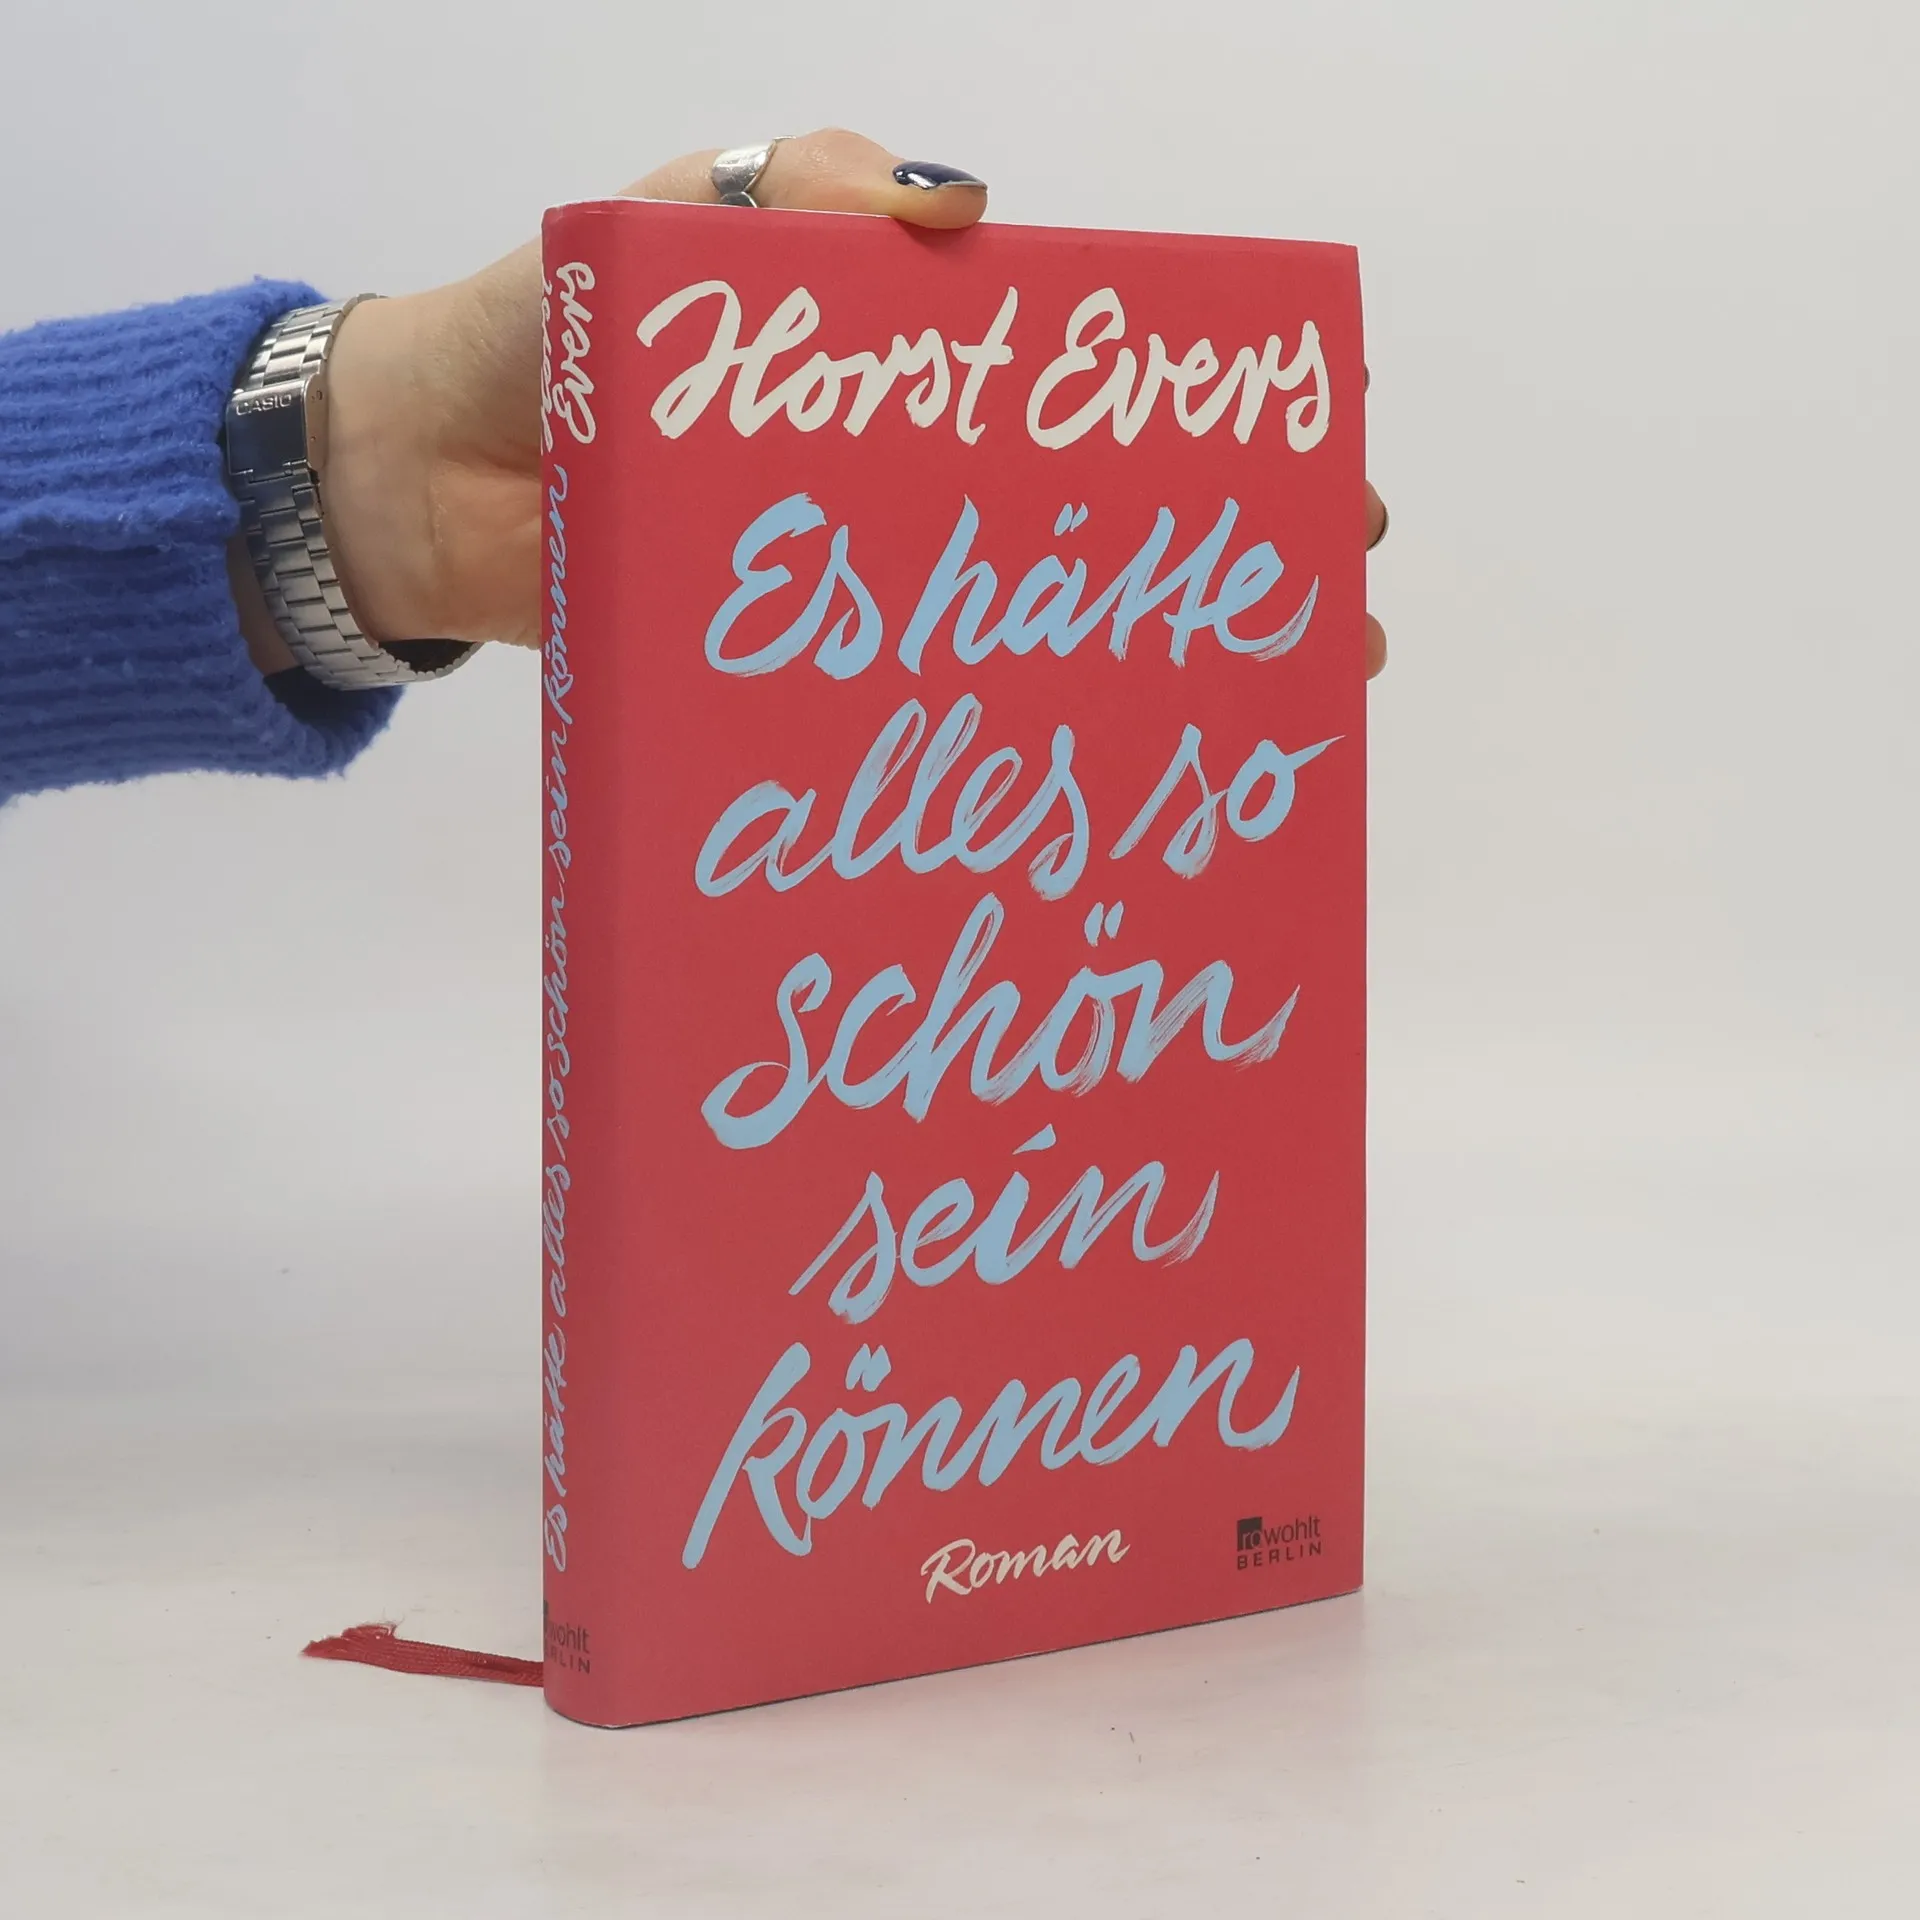 Horst Evers
Es hätte
alles so
schön
sein
können
Roman
rowohlt
BERLIN
Horst
Evers
Es hätte alles so schön sein können
rowohlt
BERLIN
CASIO